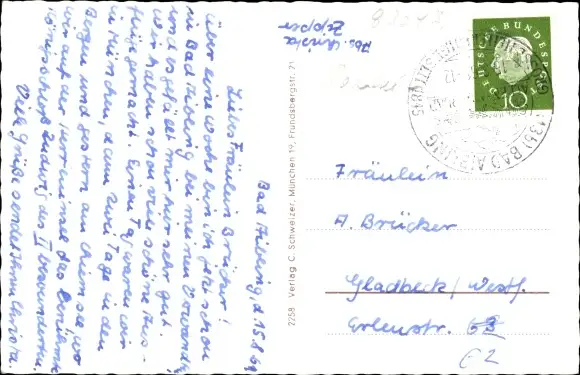 Bad Aibling, d. 15.8.60
Liebes Fräulein Brücker!
Über eine Woche bin ich jetzt schon
in Bad Aibling bei meinen Verwandten
und es gefällt mir hier sehr gut.
Wir haben schon viele schöne Aus-
flüge gemacht. Einen Tag waren wir
in München, dann zwei Tage in den
Bergen und gestern am Chiemsee wo
wir auf der Herreninsel das
Königsschloß Ludwig des II bewunderten.
Viele Grüße sendet Ihnen Christa.
Abs. Christa
Zepper
2258 Verlag C. Schweizer, München 19, Frundsbergstr. 21
DEUTSCHE BUNDESPOST
10
BAD AIBLING
Fräulein
A. Brücker
Gladbeck/Westf.
Erlenstr.